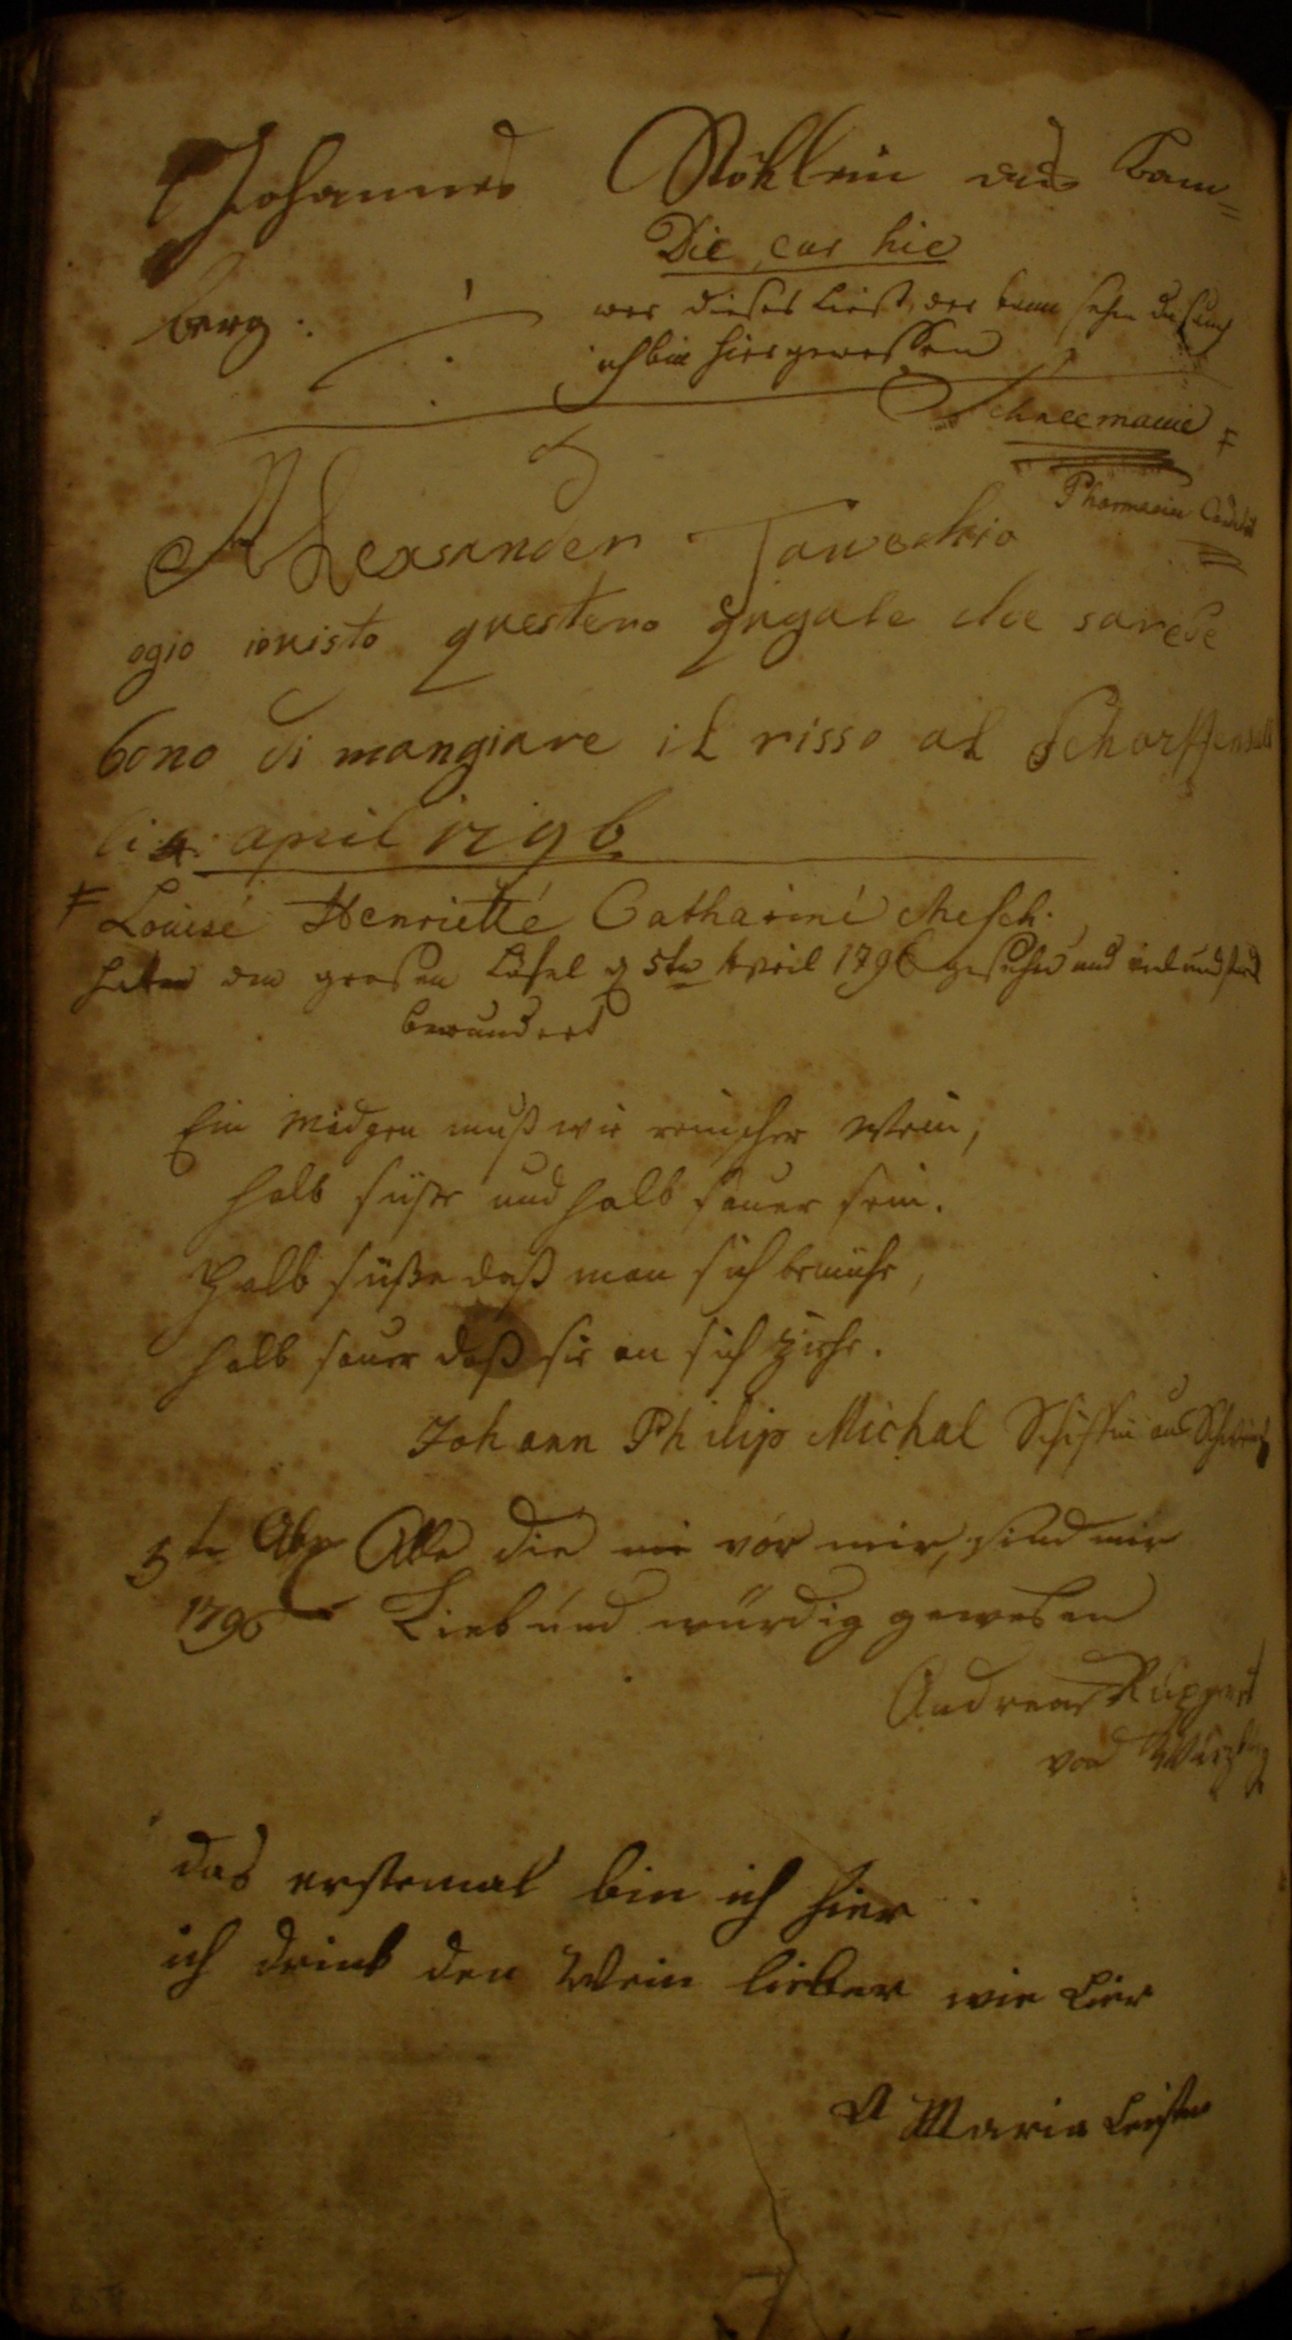 Johannes Stöklein aus Bam=
berg :
Die cur hie
wer dieses Liest, der kann sehen daß auch
ich bin hier gewessen
Schneemann
Pharmaciae
Alexsander Tavechio
ogio ivisto questeno che sarebe
bono di mangiare il risso al
li 4 april 1796
Louisé Henrietté Cathariné Mesch.
haben den grosen Löfel d 5ten April 1796 gesehen und
bewundert
Ein Mädgen muß wie reinscher Wein,
halb süße und halb sauer sein.
Halb süße daß man sich bemühe,
halb sauer daß sie an sich ziehe.
Johann Philip Michal aus
5te Abr Alle die vor mir, sind mir
1796 Lieb und würdig gewesen
Andreas Ruppert
von Würzburg
das erstemal bin ich hier
ich drink den Wein lieber wie Bier
A Maria